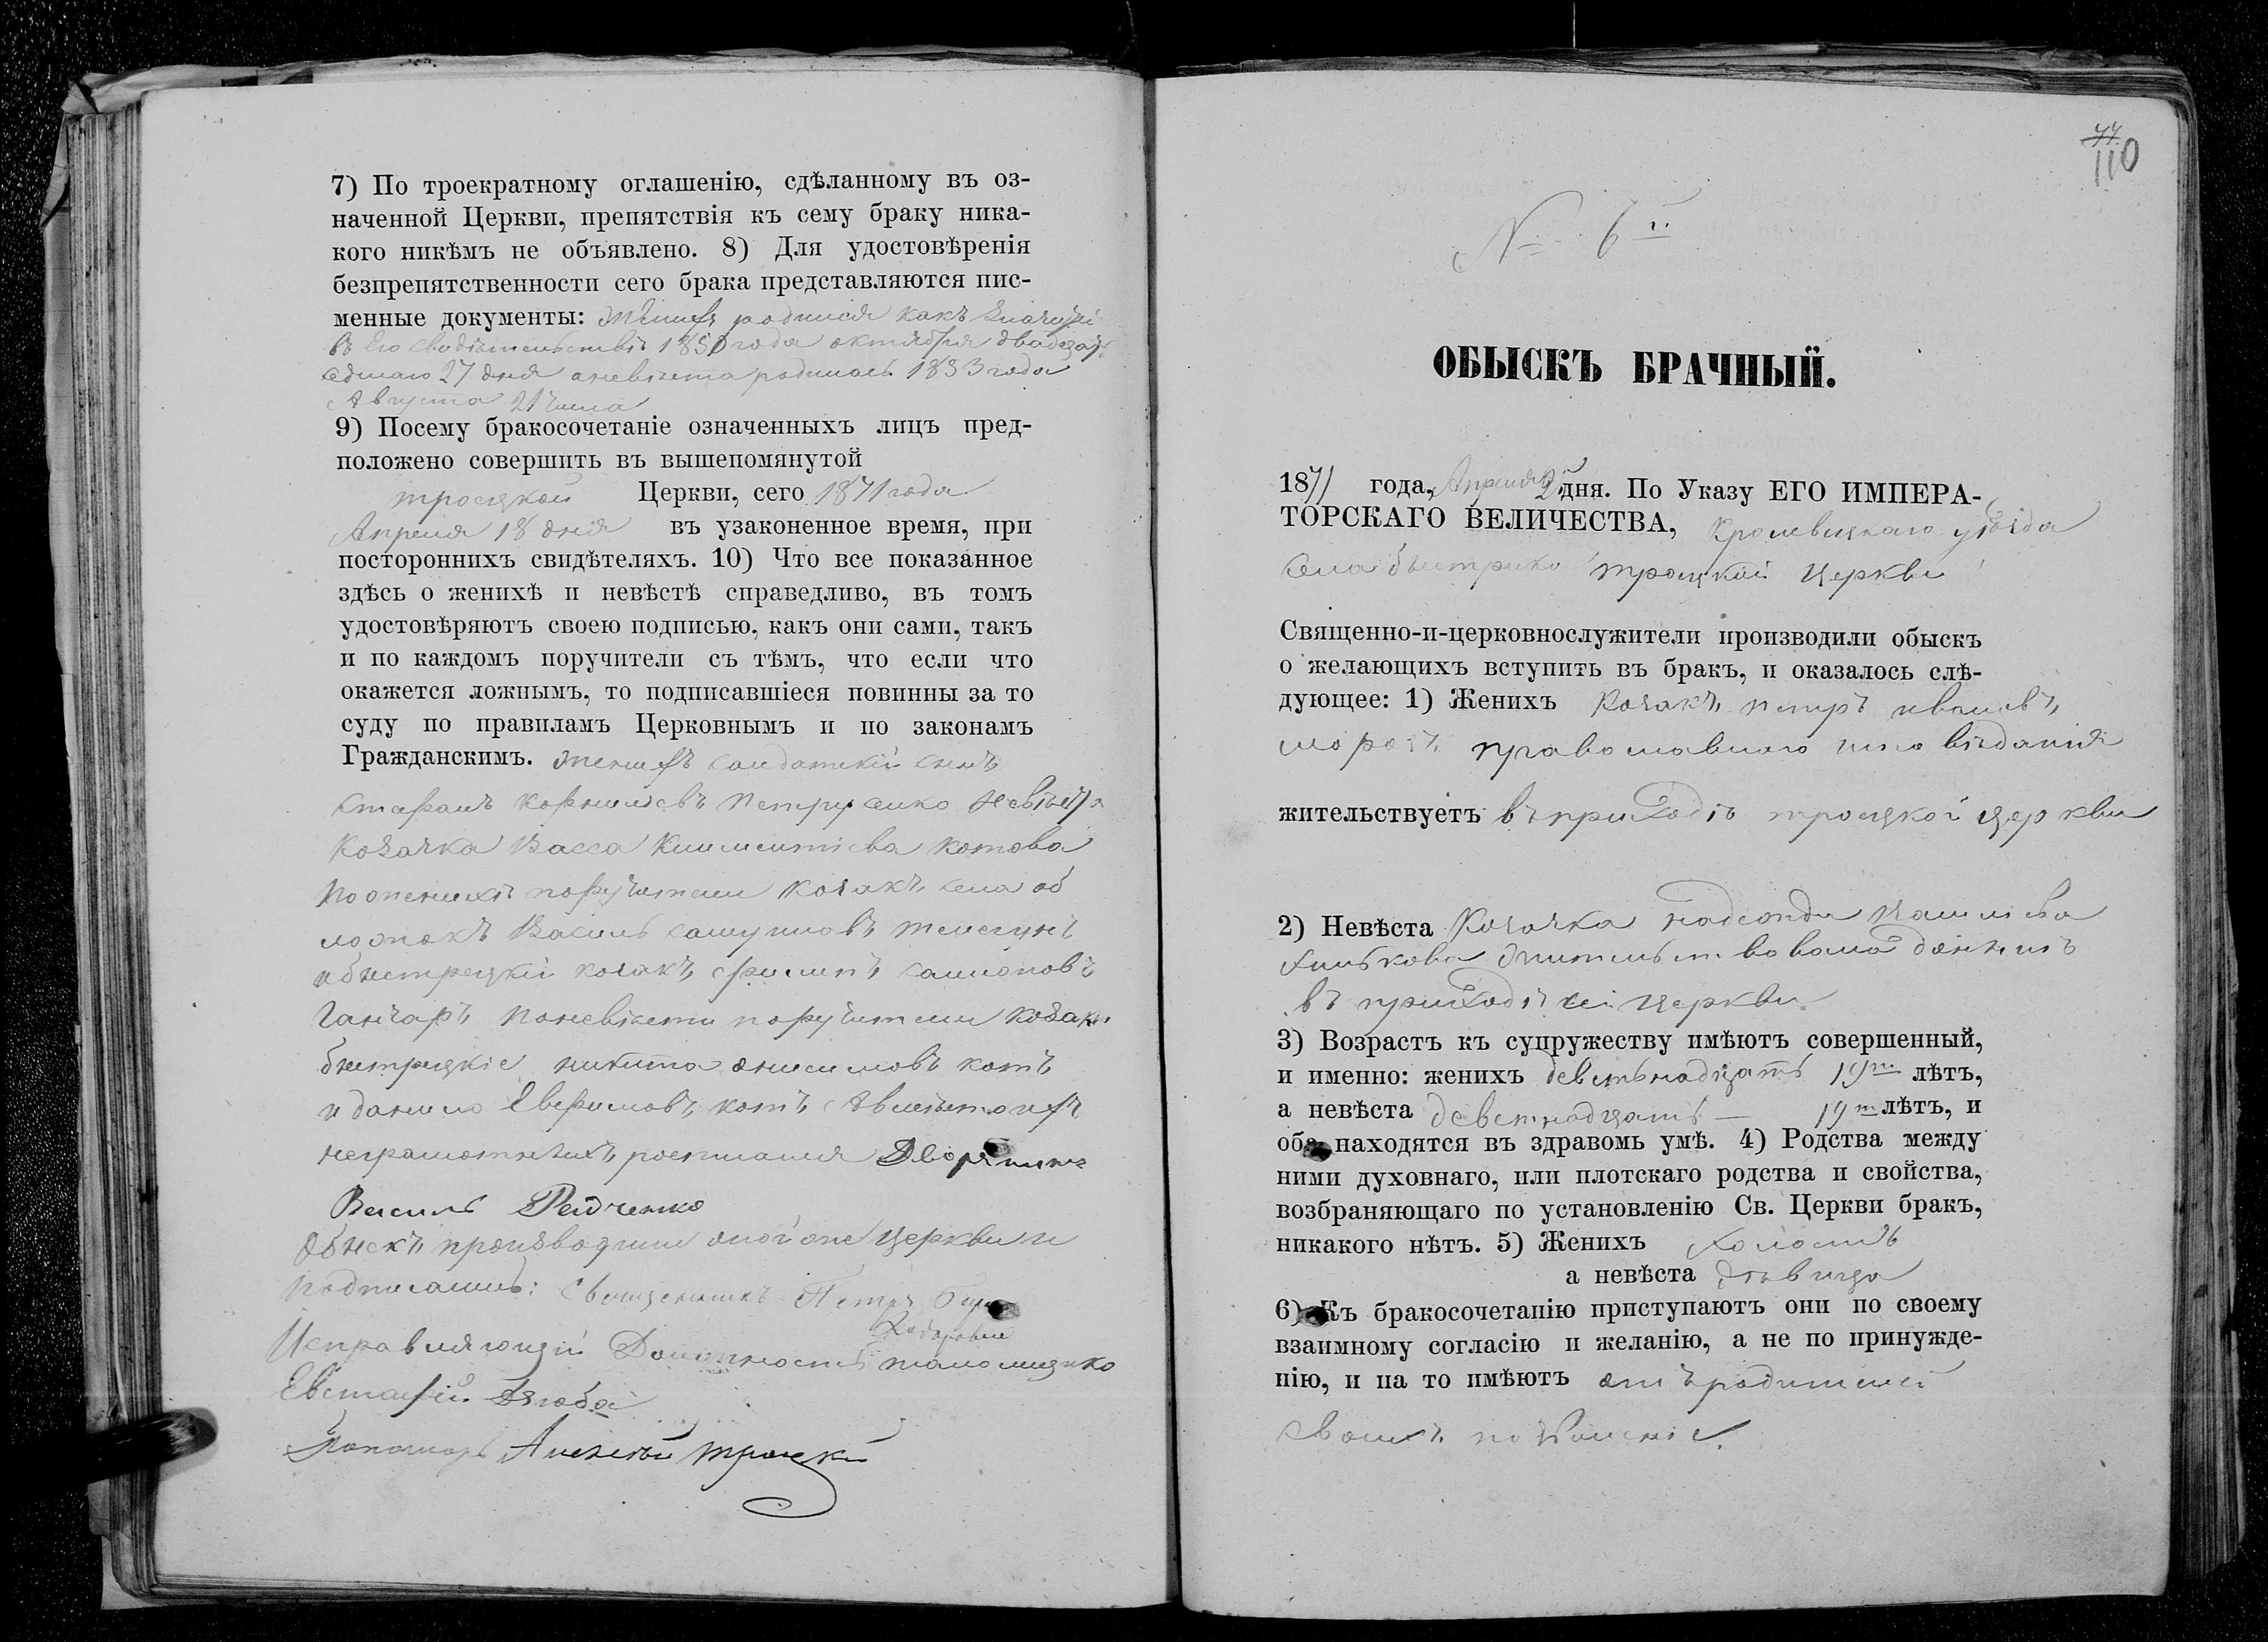 7) По троекратному оглашенію, сдѣланному въ оз-
наченной Церкви, препятствія къ сему браку ника-
кого никѣмъ не объявлено. 8) Для удостовѣренія
безпрепятственности сего брака представляются пис-
менные документы: женихъ родился какъ
въ его свидѣтельствѣ 1850 года октября двадцать
седмаго 27 дня аневѣста родилась 1853 года
Августа 21 числа
9) Посему бракосочетаніе означенныхъ лицъ пред-
положено совершить въ вышепомянутой
троецкой Церкви, сего 1871 года
Апреля 18 дня въ узаконенное время, при
постороннихъ свидѣтеляхъ. 10) Что все показанное
здѣсь о женихѣ и невѣстѣ справедливо, въ томъ
удостовѣряютъ своею подписью, какъ они сами, такъ
и по каждомъ поручители съ тѣмъ, что если что
окажется ложнымъ, то подписавшіеся повинны за то
суду по правиламъ Церковнымъ и по законамъ
Гражданскимъ. женихъ солдатскій синъ
Стефанъ Корниліевъ Петрусенко Невѣста
Козачка Васса Климентіева котова
По женихѣ поручители козакъ села об
ложокъ Василь
и бистрецкій козакъ филипъ
Ганчаръ Поневѣсти поручители козаки
бистрецкіе никита анисимовъ котъ
и данило Евфимовъ котъ
неграмотныхъ росписался Дворянинъ
Василь Редченко
Обыскъ производили оной же церкви и
подписались: Священникъ Петръ
Исправляющій Должность
Евстафій Дзюба
Пономарь Алексѣй Троецкій
77
110
№ 6й
ОБЫСКЪ БРАЧНЫЙ.
1871 года, Апреля 2 дня. По Указу ЕГО ИМПЕРА-
ТОРСКАГО ВЕЛИЧЕСТВА, Кролевецкаго уѣзда
Села бистрика троецкой Церкви
Священно-и-церковнослужители производили обыскъ
о желающихъ вступить въ бракъ, и оказалось слѣ-
дующее: 1) Женихъ Козакъ петръ ивановъ
морозъ православнаго исповѣданія
жительствуетъ въ приходѣ троецкой церкви
2) Невѣста Козачка
хилькова
въ приходѣ сей церкви
3) Возрастъ къ супружеству имѣютъ совершенный,
и именно: женихъ деветьнадцать 19ть лѣтъ,
а невѣста деветнадцать — 19ть лѣтъ, и
оба находятся въ здравомъ умѣ. 4) Родства между
ними духовнаго, или плотскаго родства и свойства,
возбраняющаго по установленію Св. Церкви бракъ,
никакого нѣтъ. 5) Женихъ холостъ
а невѣста дѣвица
6) Къ бракосочетанію приступаютъ они по своему
взаимному согласію и желанію, а не по принужде-
нію, и на то имѣютъ отъ родителей
своихъ позволеніе.